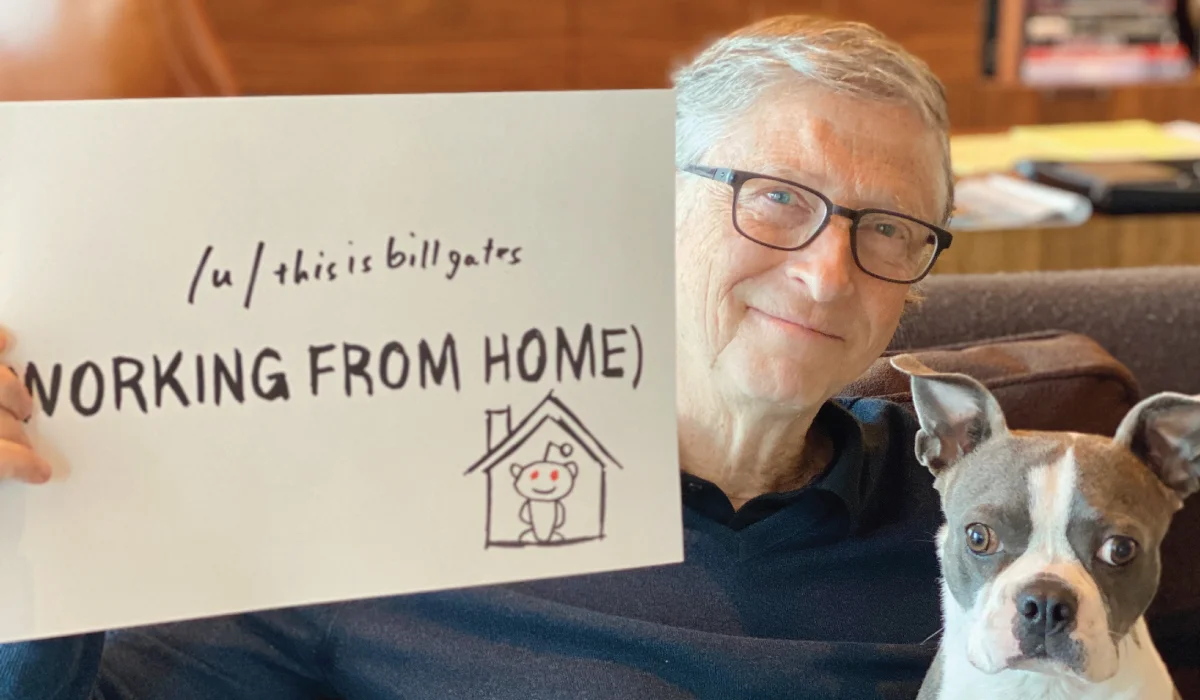 /u/thisisbillgates
WORKING FROM HOME)